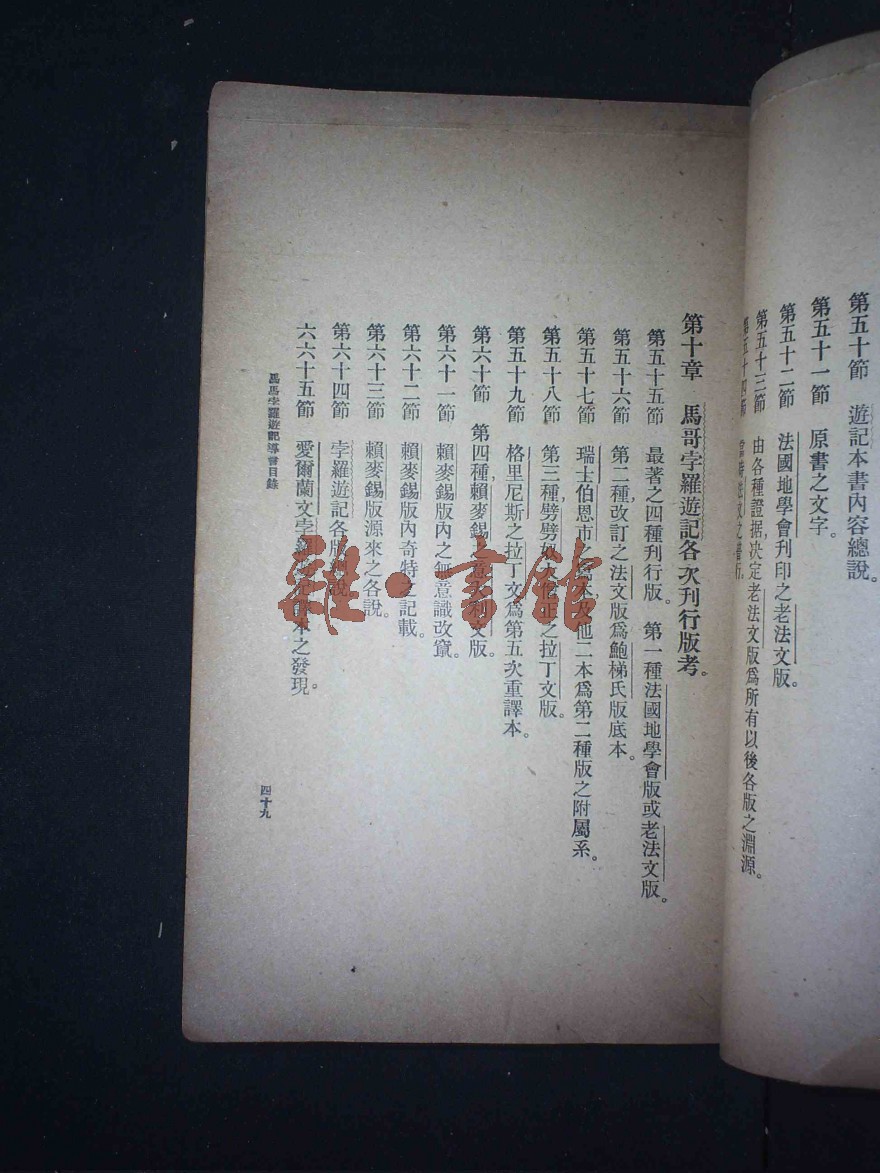 第五十節 遊記本書內容總說。
第五十一節 原書之文字。
第五十二節 法國地學會刊印之老法文版。
第五十三節 由各種證据，決定老法文版爲所有以後各版之淵源。
第五十四節
第十章 馬哥孛羅遊記各次刊行版考。
第五十五節 最著之四種刊行版。 第一種法國地學會版或老法文版。
第五十六節 第二種，改訂之法文版爲鮑梯氏版底本。
第五十七節 瑞士伯恩市之 本及他二本爲第二種版之附屬系。
第五十八節 第三種，劈劈 之拉丁文版。
第五十九節 格里尼斯之拉丁文爲第五次重譯本。
第六十節 第四種，賴麥錫之意大利文版。
第六十一節 賴麥錫版內之無意識改竄。
第六十二節 賴麥錫版內奇特之記載。
第六十三節 賴麥錫版源來之各說。
第六十四節 孛羅遊記各版 說。
六六十五節 愛爾蘭文孛羅 本之發現。
馬馬孛羅遊記導言目錄
四十九
雜·書館